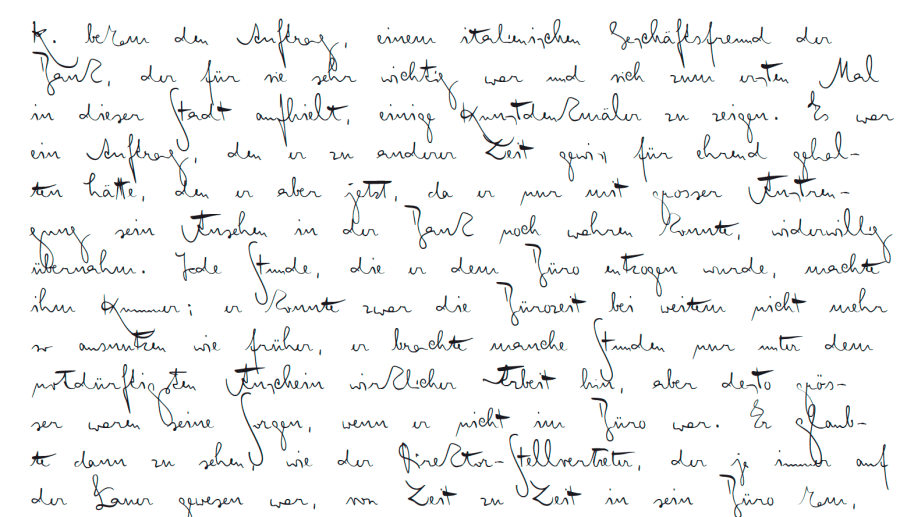 K. bekam den Auftrag, einem italienischen Geschäftsfreund der
Bank, der für sie sehr wichtig war und sich zum ersten Mal
in dieser Stadt aufhielt, einige Kunstdenkmäler zu zeigen. Es war
ein Auftrag, den er zu anderer Zeit gewiss für ehrend gehal-
ten hätte, den er aber jetzt, da er nur mit grosser Anstren-
gung sein Ansehen in der Bank noch wahren konnte, widerwillig
übernahm. Jede Stunde, die er dem Büro entzogen wurde, machte
ihm Kummer; er konnte zwar die Bürozeit bei weitem nicht mehr
so ausnutzen wie früher, er brachte manche Stunden nur unter dem
notdürftigsten Anschein wirklicher Arbeit hin, aber desto grös-
ser waren seine Sorgen, wenn er nicht im Büro war. Er glaub-
te dann zu sehen, wie der Direktor-Stellvertreter, der ja immer auf
der Lauer gewesen war, von Zeit zu Zeit in sein Büro kam,